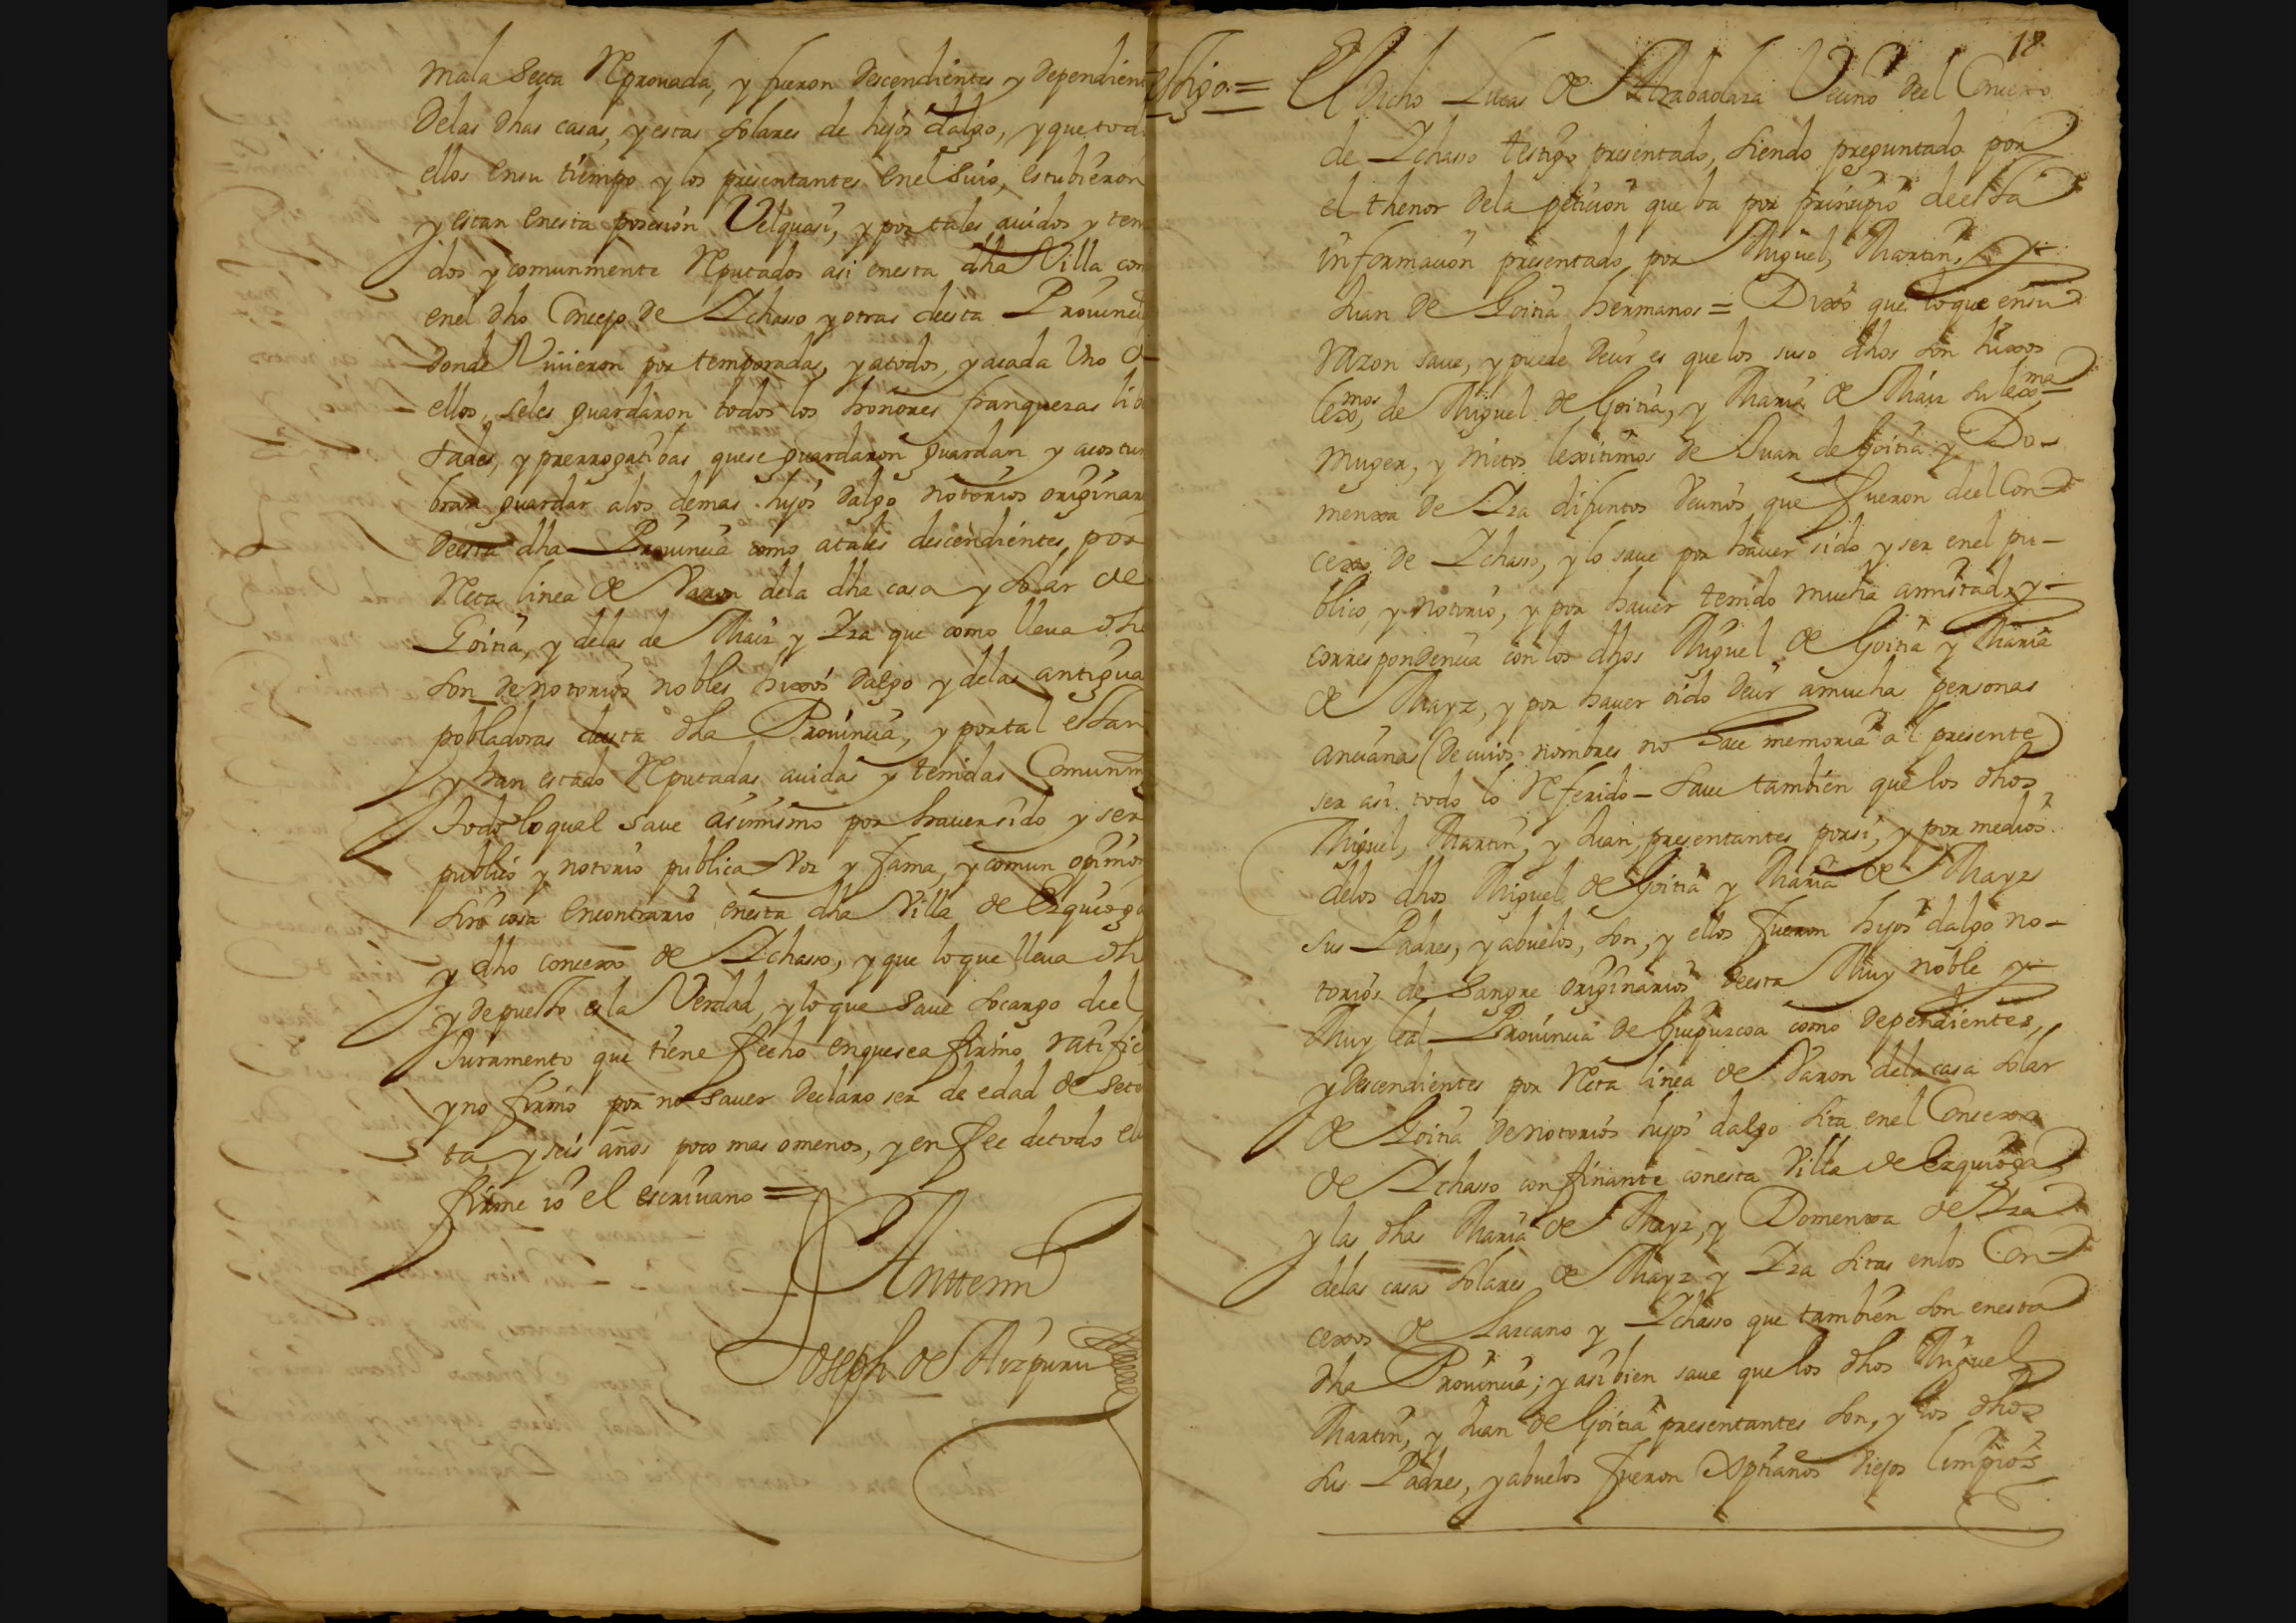 mala Secta Reprouada, y fueron Descendientes y Dependien
Delas Dhas casas, y estas solares de hijos dalgo, y que tod
ellos ensu tiempo y los presentantes enel Suio, estubieron
y estan enesta posesion Velquasi, y por tales auidos y teni
dos y comunmente Reputados asi enesta dha Villa com
enel dho Concejo de Ychasso y otras deesta Prouinci
donde Viuieron por temporadas, y atodos, y acada Uno d
ellos, seles guardaron todos los honores franquezas lib
tades, y prerrogatibas quese guardaron guardan y acostum
bran guardar alos demas hijos dalgo notorios originar
deesta dha Prouincia como atales descendientes, por
Recta linea de Varon dela dha casa y solar de
Goitia, y delas de Maiz y Yza que como lleua dh
son de notorios nobles hixos dalgo y delas antigua
pobladoras deesta dha Prouincia, y por tal estan
y han estado Reputadas auidas y tenidas Comunm
todo loqual saue asimismo por hauer sido y ser
publico y notorio publica Voz y fama, y comun opinion
sin cosa encontrario enesta dha Villa de Ezquioga
y dho concexo de Ychasso, y que loque lleua dh
y depuesto es la Verdad, y lo que saue socargo del
Juramento que tiene fecho enquesea firmo ratific
y no firmo por no sauer Declaro ser de edad de seten
ta y seis años poco mas omenos, y en fee detodo el
firme io el escriuano =
Anttemi
Joseph de Aizpuru
18
stigo = El Dicho Lucas de Arabaolaza Vecino deel Concexo
de Ychasso testigo presentado, siendo preguntado por
el thenor dela peticion que ba por principio deesta
informacion presentado por Miguel, Martin, y
Juan de Goitia hermanos = Dixo que lo que ensu
razon saue, y puede Decir es que los suso dhos son hixos
lexo,mos de Miguel de Goitia, y Maria de Maiz su lexma
muger, y nietos lexitimos de Juan de Goitia y Do-
menxa de Yza difuntos Vecinos que fueron deel Con-
cexo de Ychasso, y lo saue por hauer sido y ser enel pu-
blico, y notorio, y por hauer tenido mucha amistad, y
correspondencia con los dhos Miguel de Goitia y Maria
de Mayz, y por hauer oido decir amucha personas
ancianas (de cuios nombres no hace memoria al presente)
ser asi todo lo Referido - Saue tambien que los dhos
Miguel, Martin, y Juan, presentantes porsi, y por medios
delos dhos Miguel de Goitia y Maria de Mayz
sus Padres, y abuelos, son, y ellos fueron hijos dalgo no-
torios de sangre originarios deesta Muy noble y
Muy leal Prouincia de Guipuzcoa como dependientes,
y descendientes por Recta linea de Varon dela casa solar
de Goitia de notorios hijos dalgo sita enel Concexo
de Ychasso confinante conesta Villa de Ezquioga
y las dhas Maria de Mayz, y Domenxa de Yza
delas casas solares de Mayz y Yza sitas enlos Con-
cexos de Lazcano y Ychasso que tambien son enesta
dha Prouincia; y asibien saue que los dhos Miguel
Martin, y Juan de Goitia presentantes son, y los dhos
sus Padres, y abuelos fueron Xptianos Viejos limpios